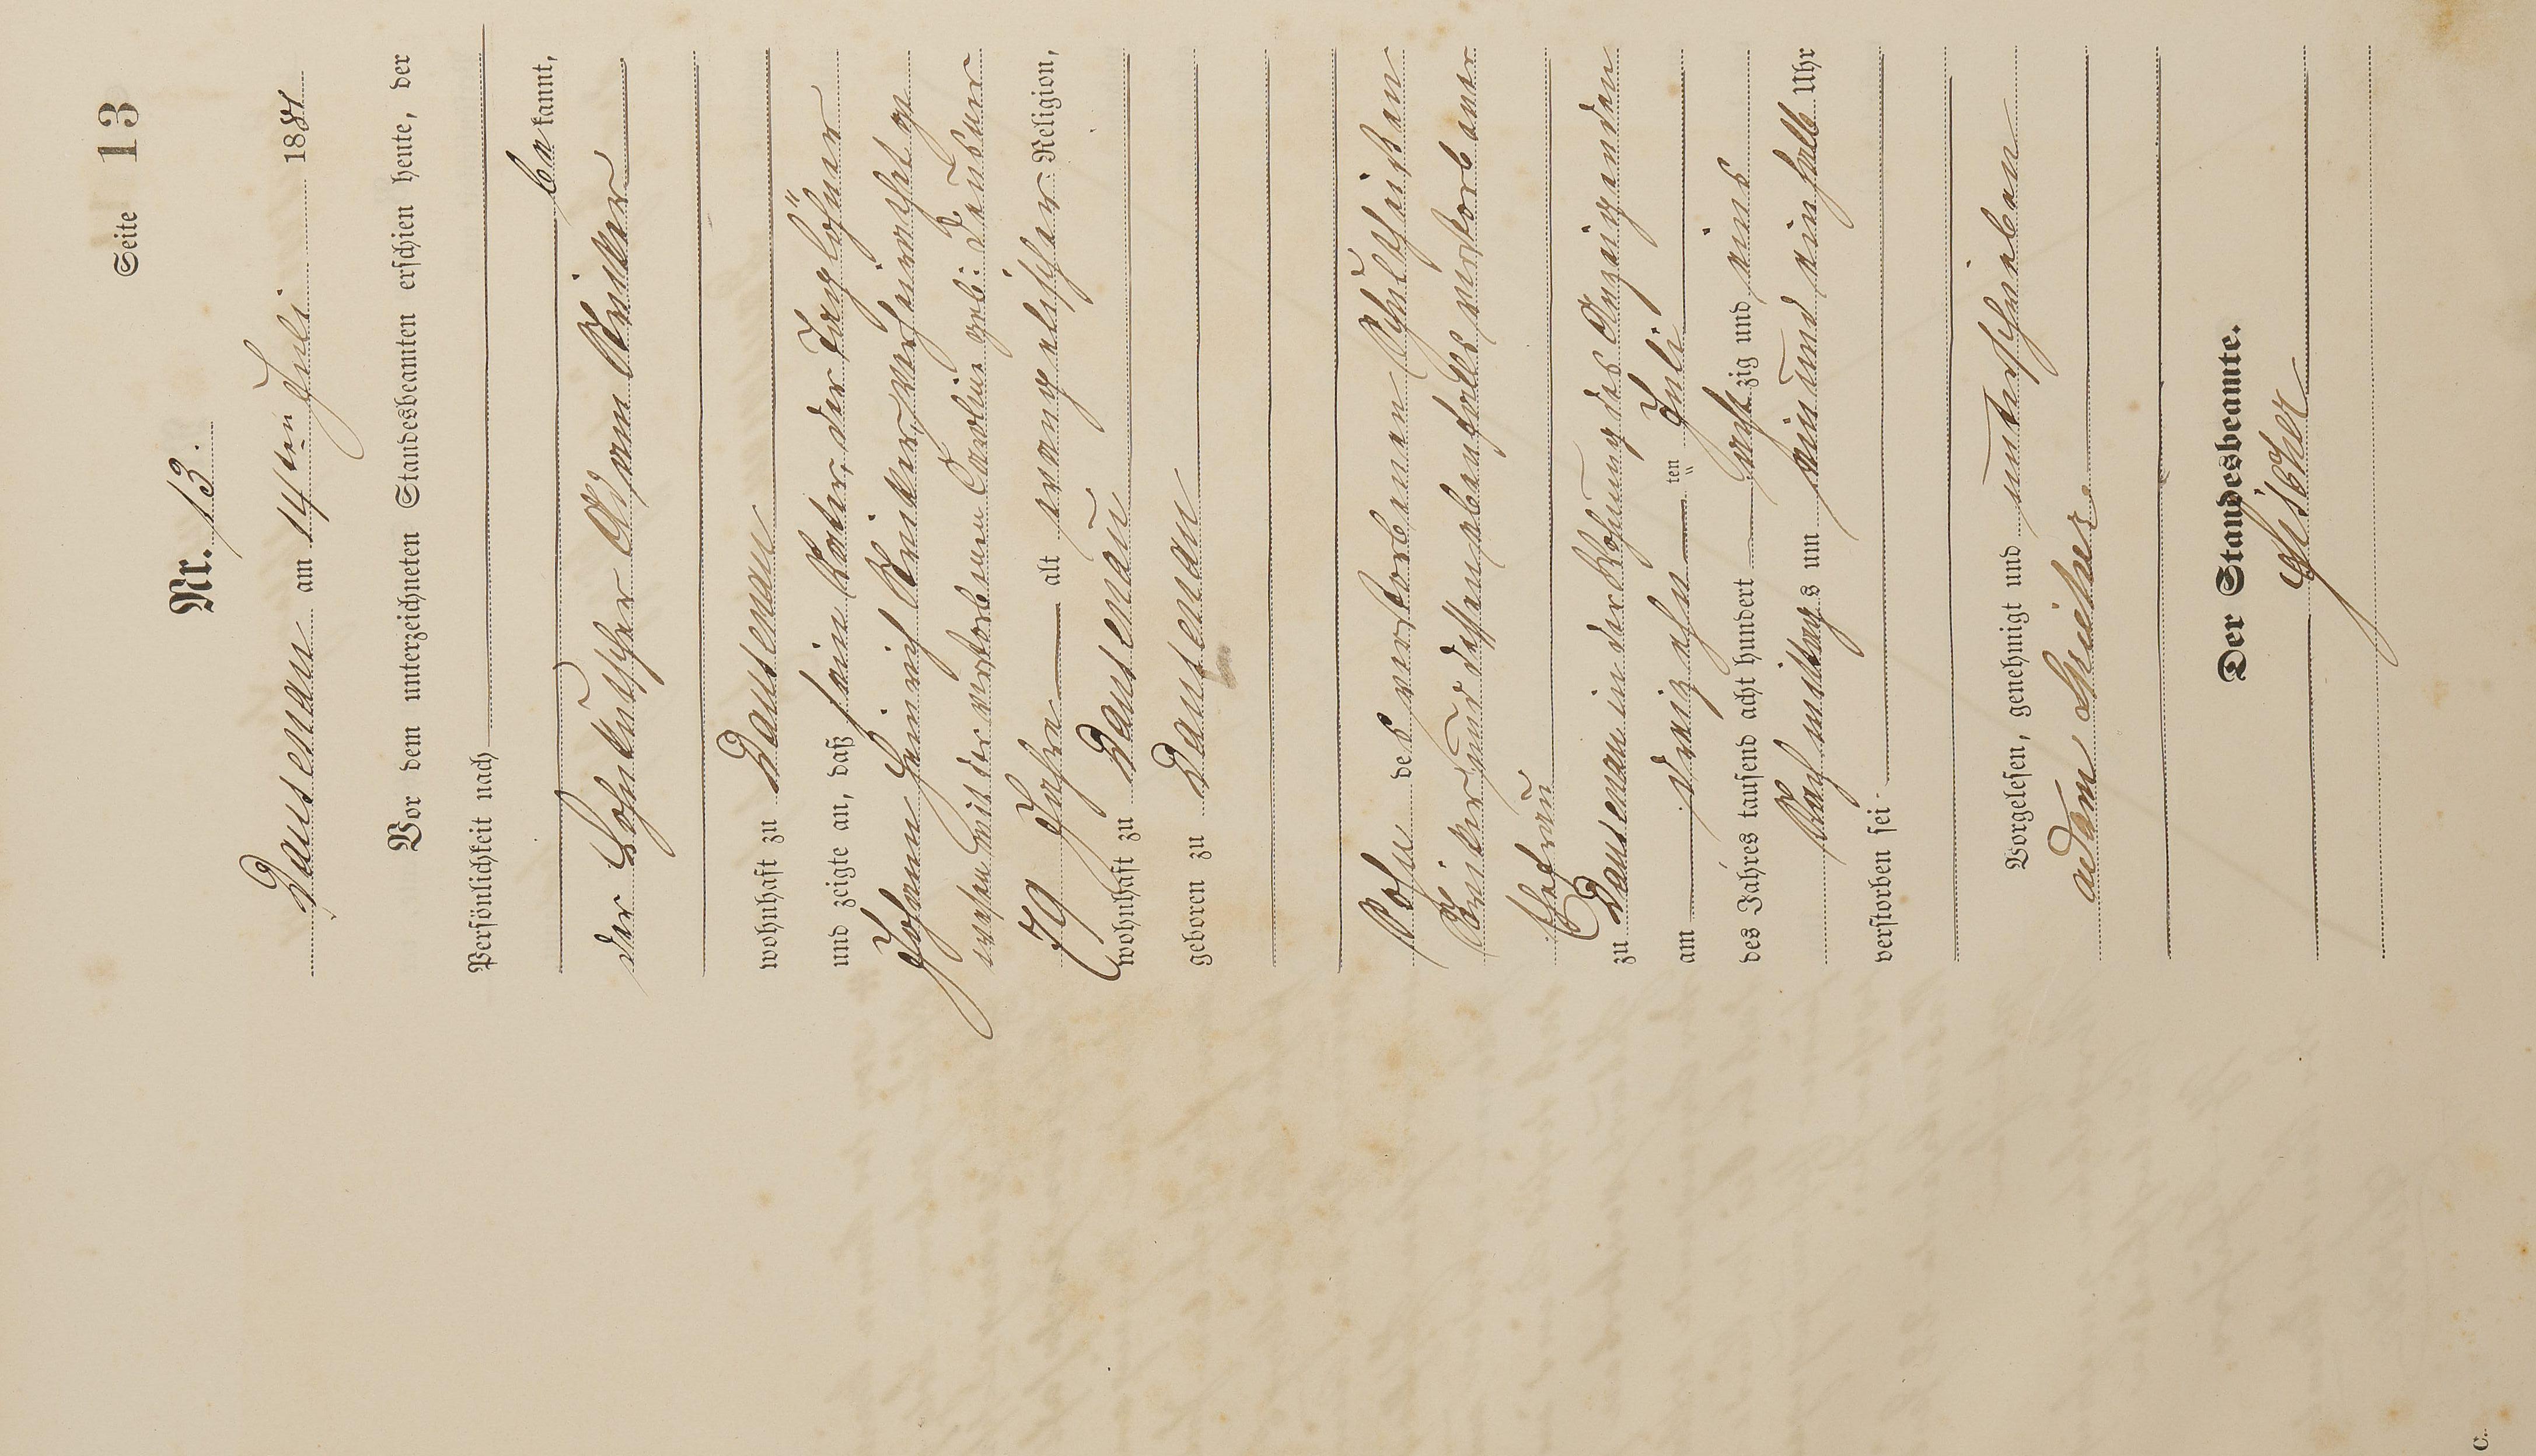 Seite 13
Nr. 13.
Dausenau am 14ten Juli 1881
Vor dem unterzeichneten Standesbeamten erschien heute, der
Persönlichkeit nach
be kannt,
der Lohnkutscher Adam
wohnhaft zu Dausenau
und zeigte an, daß sein Vater, der Taglöhner
Johann Heinrich verheirathet ge
wesen mit der verstorbenen Caroline geb:
79 Jahre alt evangelischer Religion,
wohnhaft zu Dausenau
geboren zu Dausenau
Sohn des verstorbenen Schultheißen
und dessen ebenfalls verstorbener
Ehefrau
zu Dausenau in der Wohnung des Anzeigenden
am dreizehn ten Juli
des Jahres tausend acht hundert acht zig und eins
Nach mittags um ein und ein halb Uhr
verstorben sei
Vorgelesen, genehmigt und unterschrieben
Adam
Der Standesbeamte.
Fischer
C.